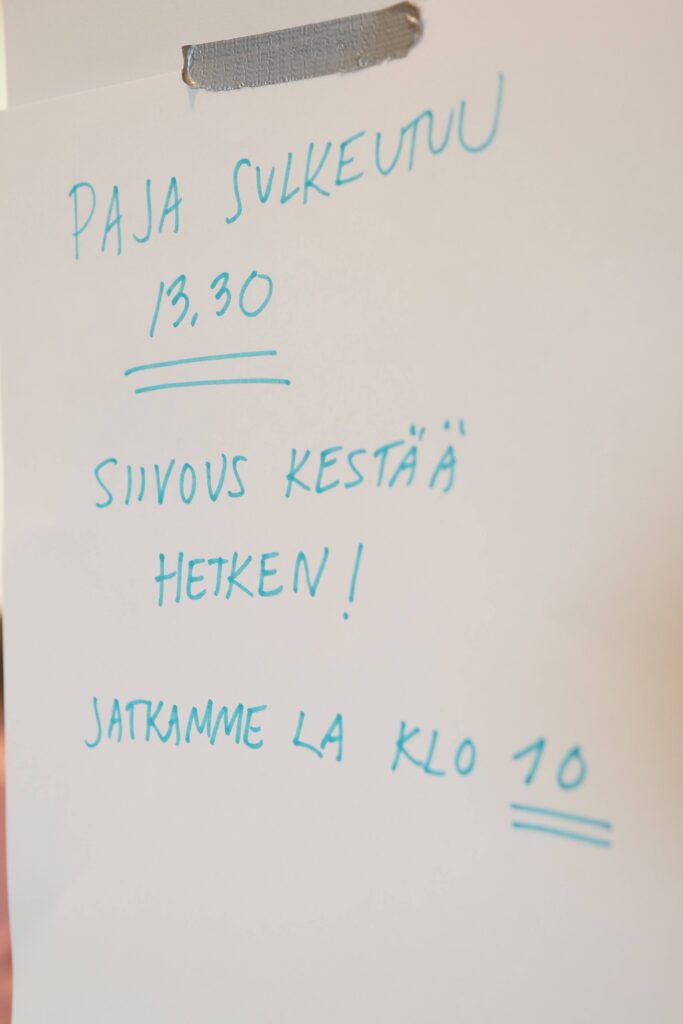 PAJA SULKEUTUU
13.30
SIIVOUS KESTÄÄ
HETKEN!
JATKAMME LA KLO 10